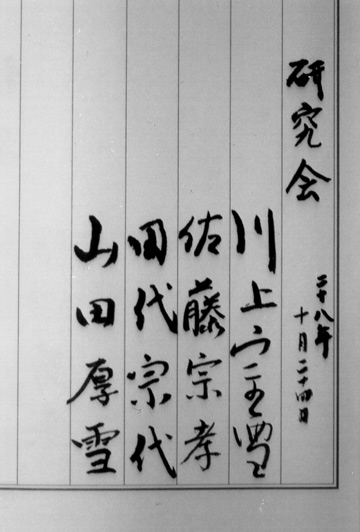 研究会
二十八年
十月二十四日
川上宗雪
佐藤宗孝
田代宗代
山田厚雪